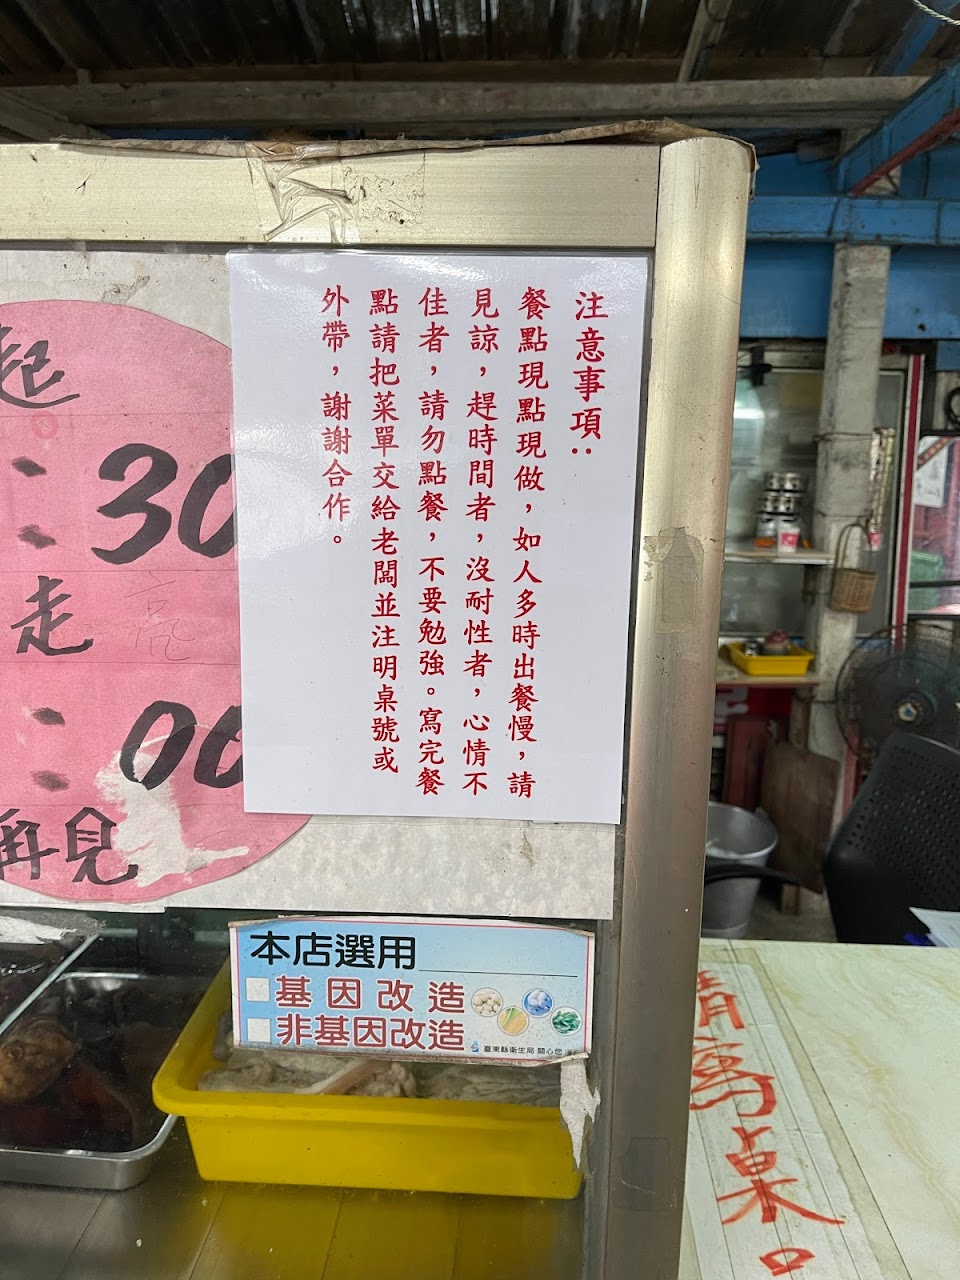 注意事項：
餐點現點現做，如人多時出餐慢，請
見諒，趕時間者，沒耐性者，心情不
佳者，請勿點餐，不要勉強。寫完餐
點請把菜單交給老闆並注明桌號或
外帶，謝謝合作。
起
：30
走
：00
再見
本店選用
基因改造
非基因改造
臺東縣衛生局 關心您
桌。